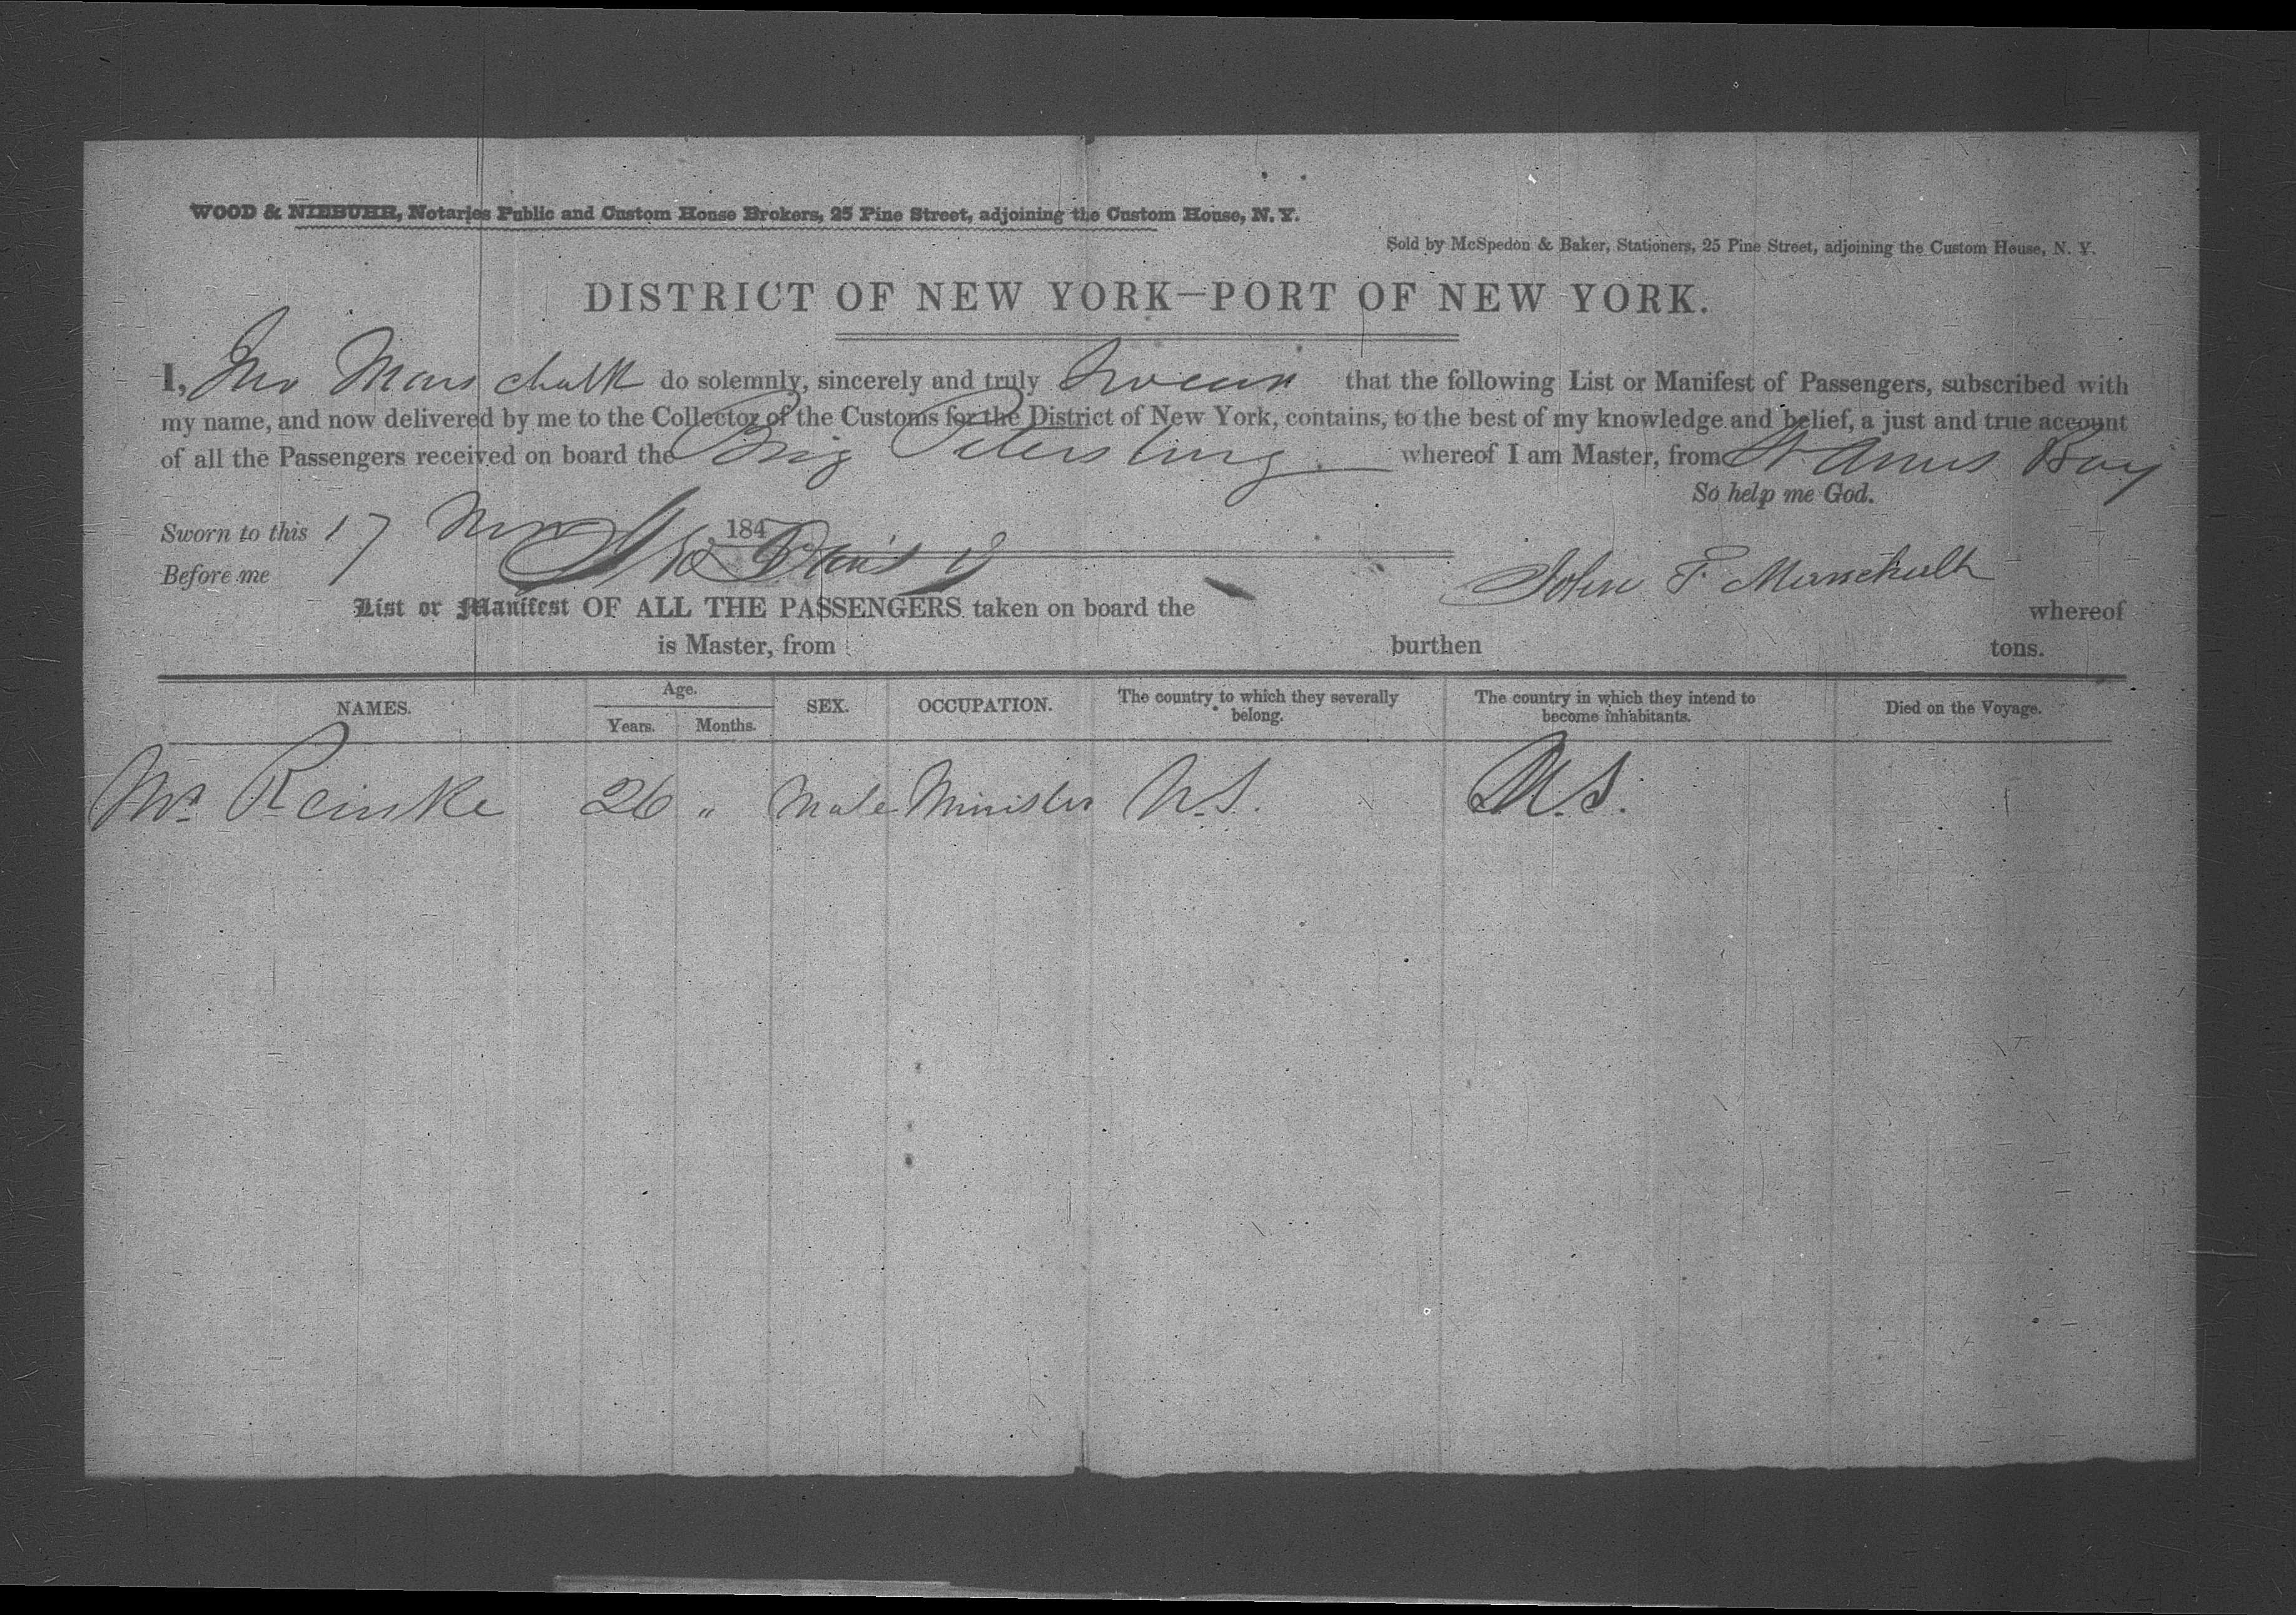 WOOD & NIEBUHR, Notaries Public and Custom House Brokers, 25 Pine Street, adjoining the Custom House, N. Y.
Sold by McSpedon & Baker, Stationers, 25 Pine Street, adjoining the Custom House, N. Y.
DISTRICT OF NEW YORK—PORT OF NEW YORK.
I, Jno Marschalk do solemnly, sincerely and truly swear that the following List or Manifest of Passengers, subscribed with
my name, and now delivered by me to the Collector of the Customs for the District of New York, contains, to the best of my knowledge and belief, a just and true account
of all the Passengers received on board the Brig Petersburg whereof I am Master, from St Anns Bay
So help me God.
Sworn to this 17 184
Before me
John F Marschalk
List or Manifest OF ALL THE PASSENGERS taken on board the whereof
is Master, from burthen tons.
NAMES. Age. Years. Months. SEX. OCCUPATION. The country to which they severally belong. The country in which they intend to become inhabitants. Died on the Voyage.
Mr Reinke 26 " Male Minister U.S. U.S.